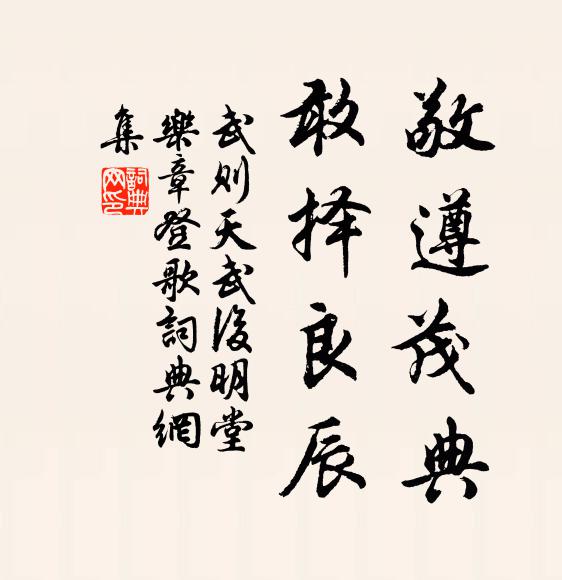 敬遵茂典
敢择良辰
武则天武後明堂
樂章登歌詞典網
集
詞典網印